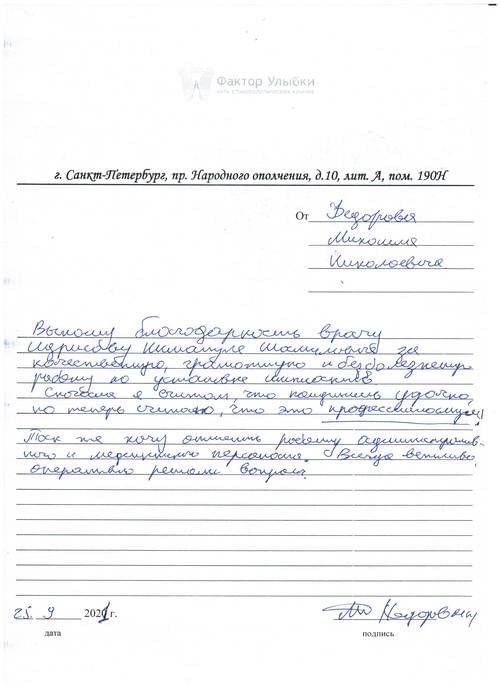 Фактор Улыбки
сеть стоматологических клиник
г. Санкт-Петербург, пр. Народного ополчения, д.10, лит. А, пом. 190Н
От Федоровa
Михаила
Николаевича
Выношу благодарность врачу
Шамильевичу за
качественную, грамотную и безболезненную
работу по установке имплантов
Сначала я считал, что попалась удача,
но теперь считаю, что это профессионализм!
Так же хочу отметить работу административ-
ного и медицинского персонала. Всегда вежливо,
оперативно решали вопросы.
25. 9 2021 г.
дата подпись